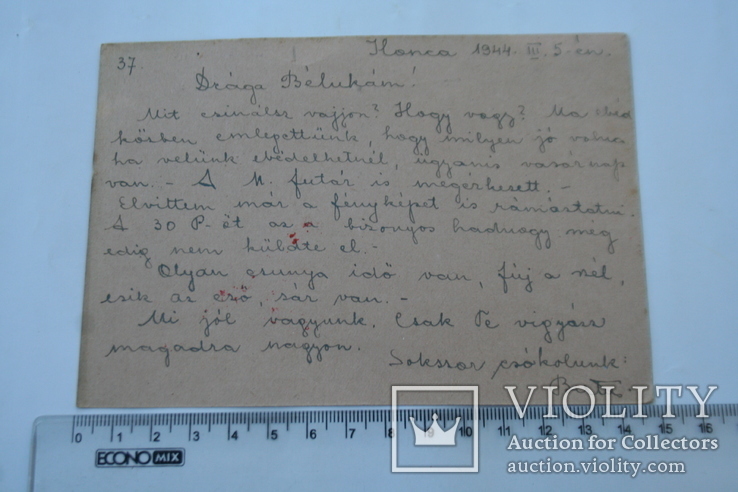 37.
Ilonca 1944. III. 5-én.
Drága Bélukám!
Mit csinálsz vajjon? Hogy vagy? Ma ebéd
közben emlegettünk, hogy milyen jó volna
ha velünk ebédelhetnél, ugyanis vasárnap
van. - A M. futár is megérkezett. -
Elvittem már a fényképet is rámáztatni.
A 30 P-ét az a bizonyos hadnagy még
edig nem küldte el. -
Olyan csunya idő van, fúj a szél,
esik az eső, sár van. -
Mi jól vagyunk. Csak Te vigyázz
magadra nagyon.
Sokszor csókolunk:
VIOLITY
Auction for Collectors
auction.violity.com
0 1 2 3 4 5 6 7 8 9 10 11 12 13 14 15 16
ECONOMIX